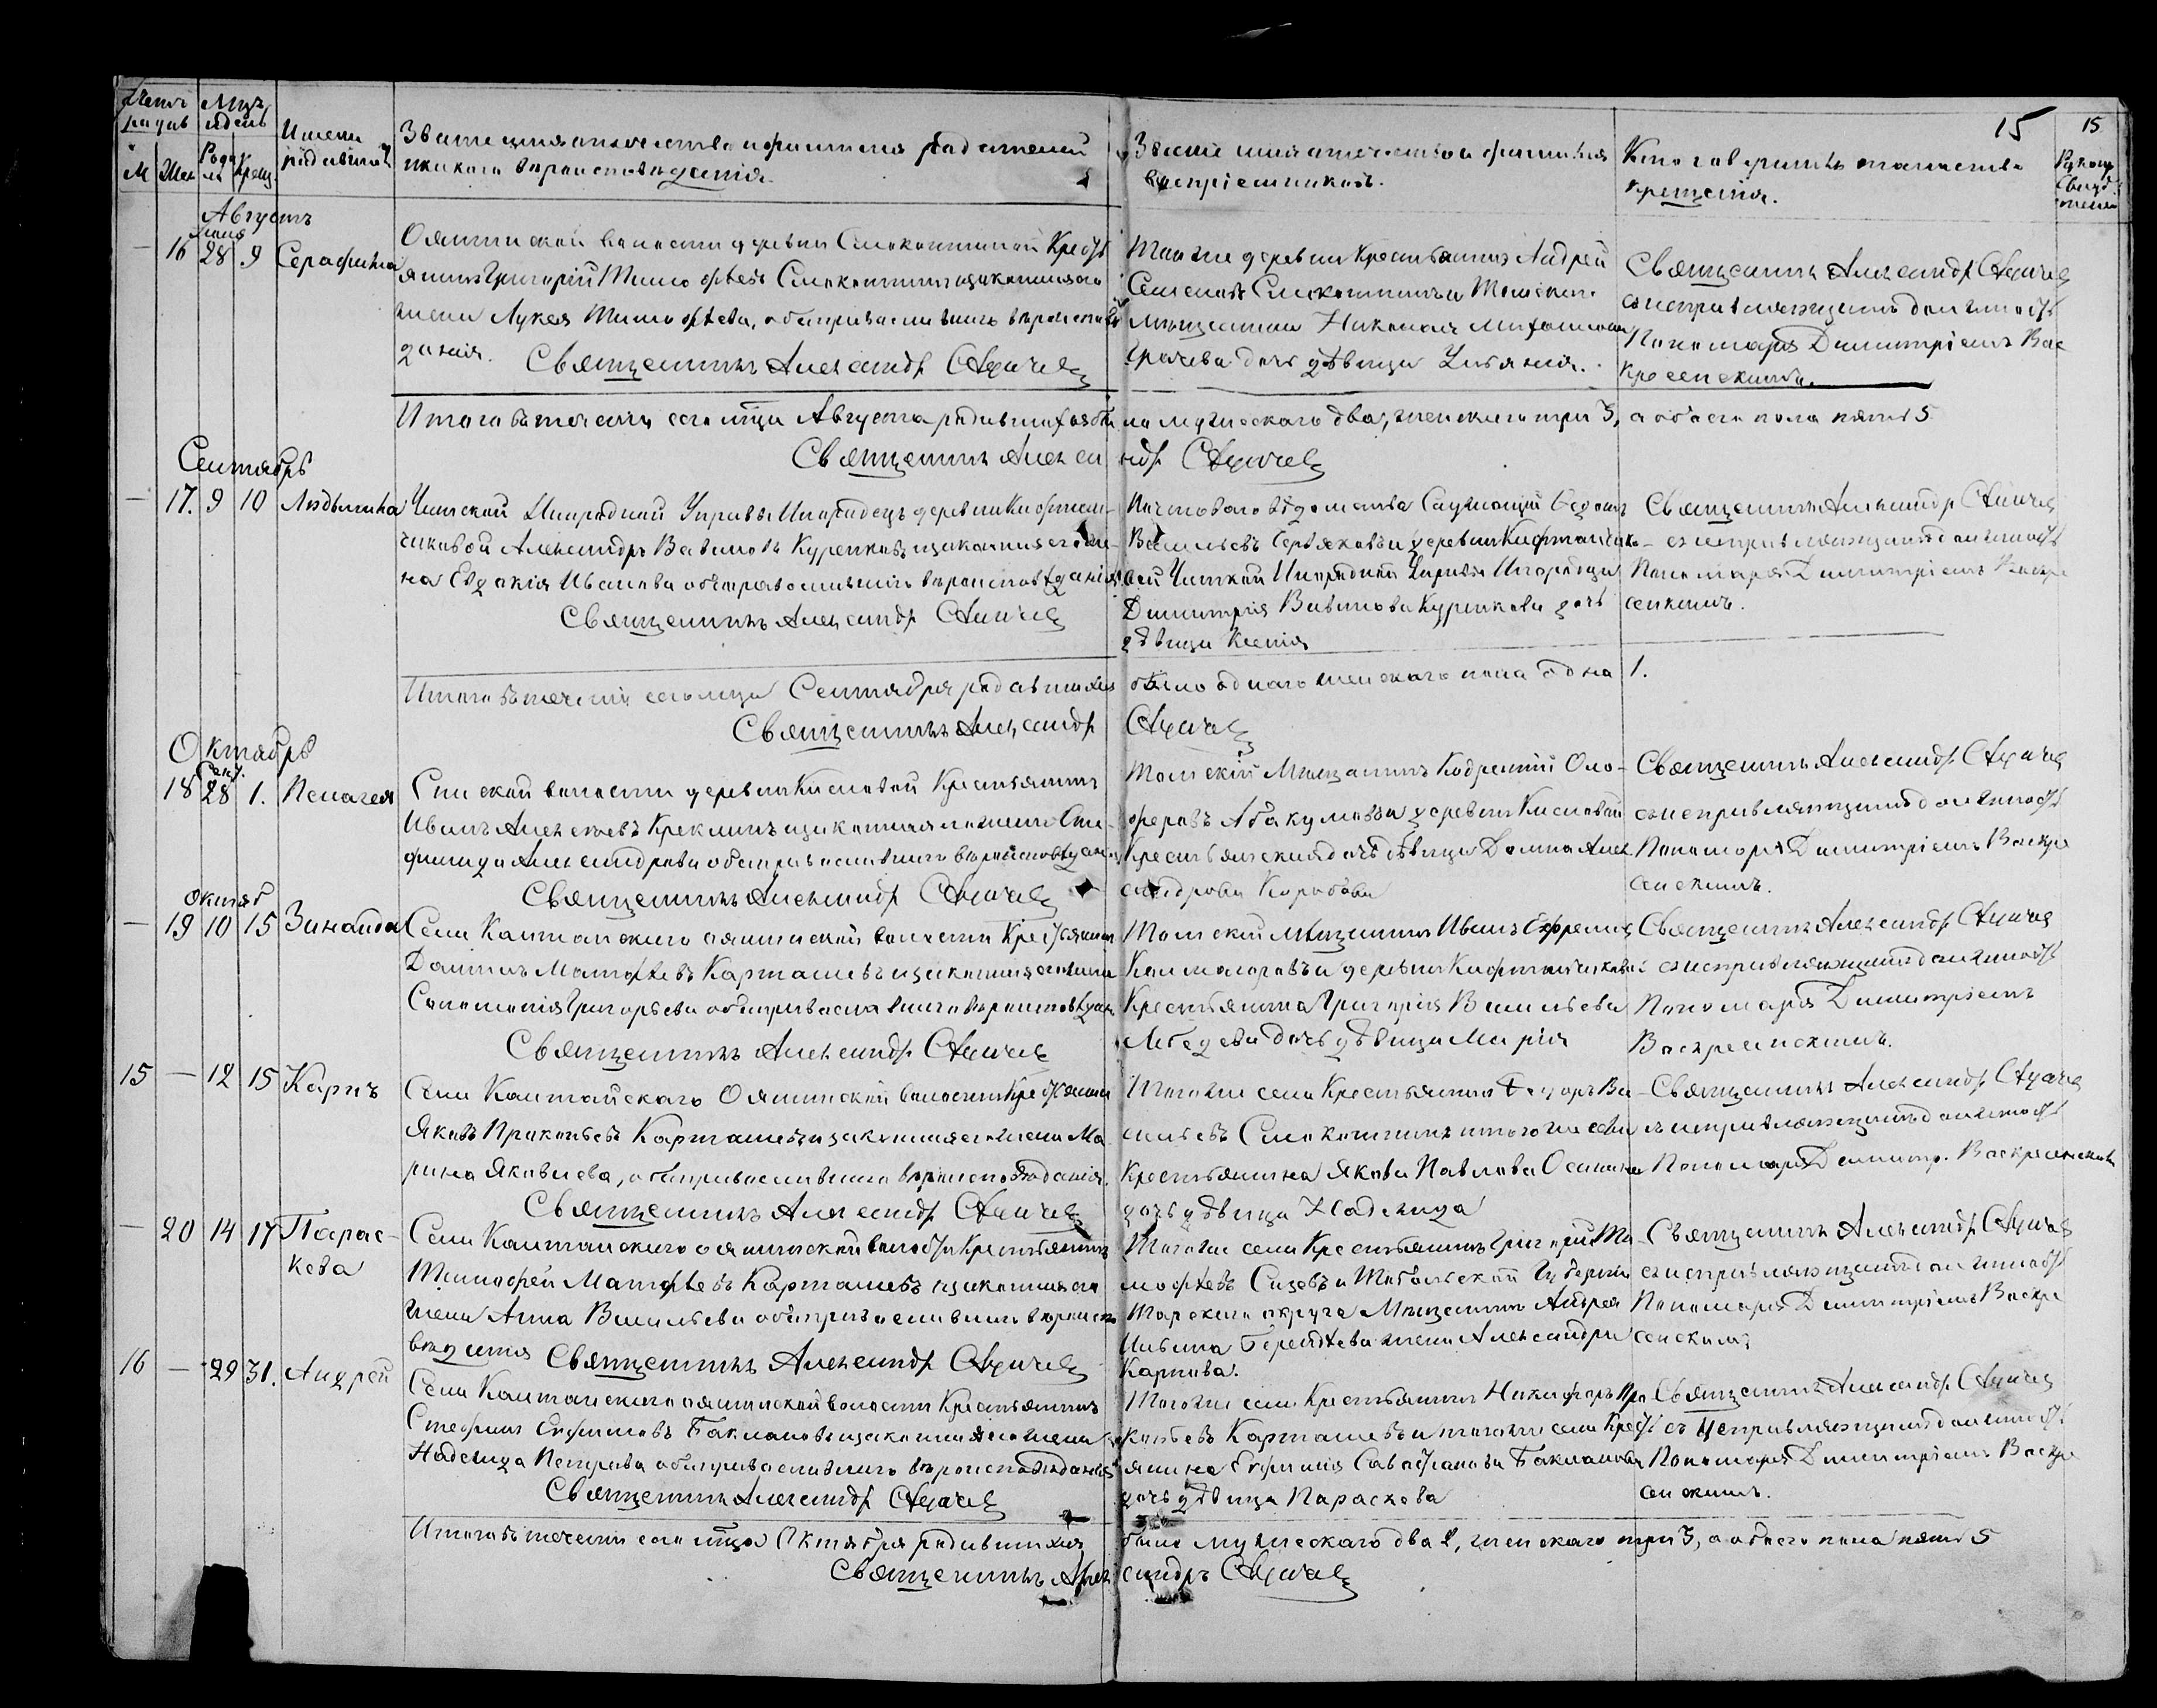 Счетъ
родив
Мцъ
и день
М
Жен
Роди
ли
Крещ
Имена
родивших
Званіе имя отчество и фамилія родителей
и какого вѣроисповѣданія.
Званіе имя отчество и фамилія
воспріемниковъ.
Кто совершилъ таинство
крещенія.
15
15
Рукопр
Свидѣ
Августъ
— 16 28 9 Серафима
Ояшинской волости деревни Смокотиной Крестъ
янинъ Григорій Тимофѣевъ Смокотинъ и законная его
жена Лукея Тимофѣева, оба православнаго вѣроисповѣ
данія. Священникъ Александръ
Тойже деревни Крестьянинъ Андрей
Семеновъ Смокотинъ и Томскаго
мѣщанина Николая
Грачева дочь дѣвица Ульянія.
Священникъ Александръ
съ исправляющимъ должность
Пономаря Димитріемъ Вос
кресенскимъ.
Итого въ теченіи сего мца Августа родившихся бы
ло мужескаго два, женскаго три 3, а обоего пола пять 5
Священникъ Алекса
ндръ
Сентябрь
— 17. 9 10 Людмила
Чатской Инородной Управы Инородецъ деревни Кафтан-
чиковой Александръ Вавиловъ Куренковъ и законная его же-
на Евдокія Иванова оба православнаго вѣроисповѣданія
Священникъ Александръ
Почтоваго вѣдомства Служащій
Васильевъ и деревни Кафтанчико-
вой Чатской Инородной Управы Инородца
Димитрія Вавилова Куренкова дочь
дѣвица Ксенія
Священникъ Александръ
съ исправляющимъ должность
Пономаря Димитріемъ Воскре
сенскимъ.
Итого въ теченіи сего мца Сентября родившихся
было одного женскаго пола одна 1.
Священникъ Александръ
Октябрь
Сент.
18 28 1. Пелагея
Спасской волости деревни Кисловой Крестьянинъ
Иванъ Алексѣевъ Креклинъ и законная его жена Сте-
фанида Александрова оба православнаго вѣроисповѣдан
Священникъ Александръ
Томскій Мѣщанинъ Кодратій Оло-
феровъ Абакумовъ и деревни Кисловой
Крестьянская дочь дѣвица Домна Алек
сандрова Коробова
Священникъ Александръ
съ исправляющимъ должность
Пономаря Димитріемъ Воскре
сенскимъ.
Октяб
— 19 10 15 Зинаида
Села Калтайскаго ояшинской волости Крестьянинъ
Даніилъ Матфѣевъ Карташевъ и законная его жена
Соломонія Григорьева оба православнаго вѣроисповѣдан
Священникъ Александръ
Томскій мѣщанинъ Иванъ Ефремовъ
Колмагоровъ и деревни Кафтанчиковой
Крестьянина Григорія Васильева
Лебедева дочь дѣвица Марія
Священникъ Александръ
съ исправляющимъ должность
Пономаря Димитріемъ
Воскресенскимъ.
15 — 12 15 Карпъ
Села Калтайскаго Ояшинской волости Крестьянинъ
Яковъ Прокопьевъ Карташевъ и законная его жена Ма-
рина Яковлева, оба православнаго вѣроисповѣданія.
Священникъ Александръ
Тогоже села Крестьянинъ Ѳедоръ Ва-
сильевъ Смокотинъ и того же села
Крестьянина Якова Павлова Осипова
дочь дѣвица Надежда
Священникъ Александръ
съ исправляющимъ должность
Пономаря Димитр. Воскресенскимъ
— 20 14 17 Парас-
кева
Села Калтайскаго ояшинской волости Крестьянинъ
Тимофей Матфѣевъ Карташевъ и законная его
жена Анна Васильева оба православнаго вѣроиспо
вѣданія Священникъ Александръ
Тогоже села Крестьянинъ Григорій Ти-
мофѣевъ Сизевъ и Тобольской Губерніи
Тарскаго округа Мѣщанина Андрея
жена Александра
Карпова.
Священникъ Александръ
съ исправляющимъ должность
Пономаря Димитріемъ Воскре
сенскимъ
16 — 29 31. Андрей
Села Калтайскаго ояшинской волости Крестьянинъ
Стефанъ Ефимовъ Баклановъ и законная его жена
Надежда Петрова оба православнаго вѣроисповѣданія
Священникъ Александръ
Тогоже села Крестьянинъ Никифоръ Про
копьевъ Карташевъ и тогоже села Кресть
янина Ефимія Бакланова
дочь дѣвица Параскева
Священникъ Александръ
съ исправляющимъ должность
Пономаря Димитріемъ Воскре
сенскимъ.
Итого въ теченіи сего мца Октября родившихся
было мужескаго два 2, женскаго три 3, а обоего пола пять 5
Священникъ Алек
сандръ